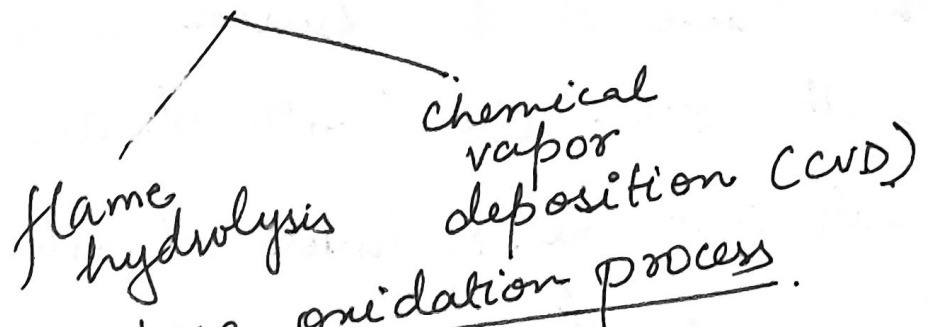 flame
hydrolysis
chemical
vapor
deposition (CVD)
oxidation process.